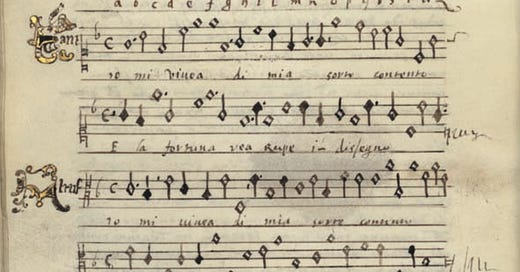 a b c d e f g h i l m n o p q r s t u
Cant
Io mi vivea di mia sorte contento
E la fortuna rea rupe il disegno
Io mi vivea di mia sorte contento